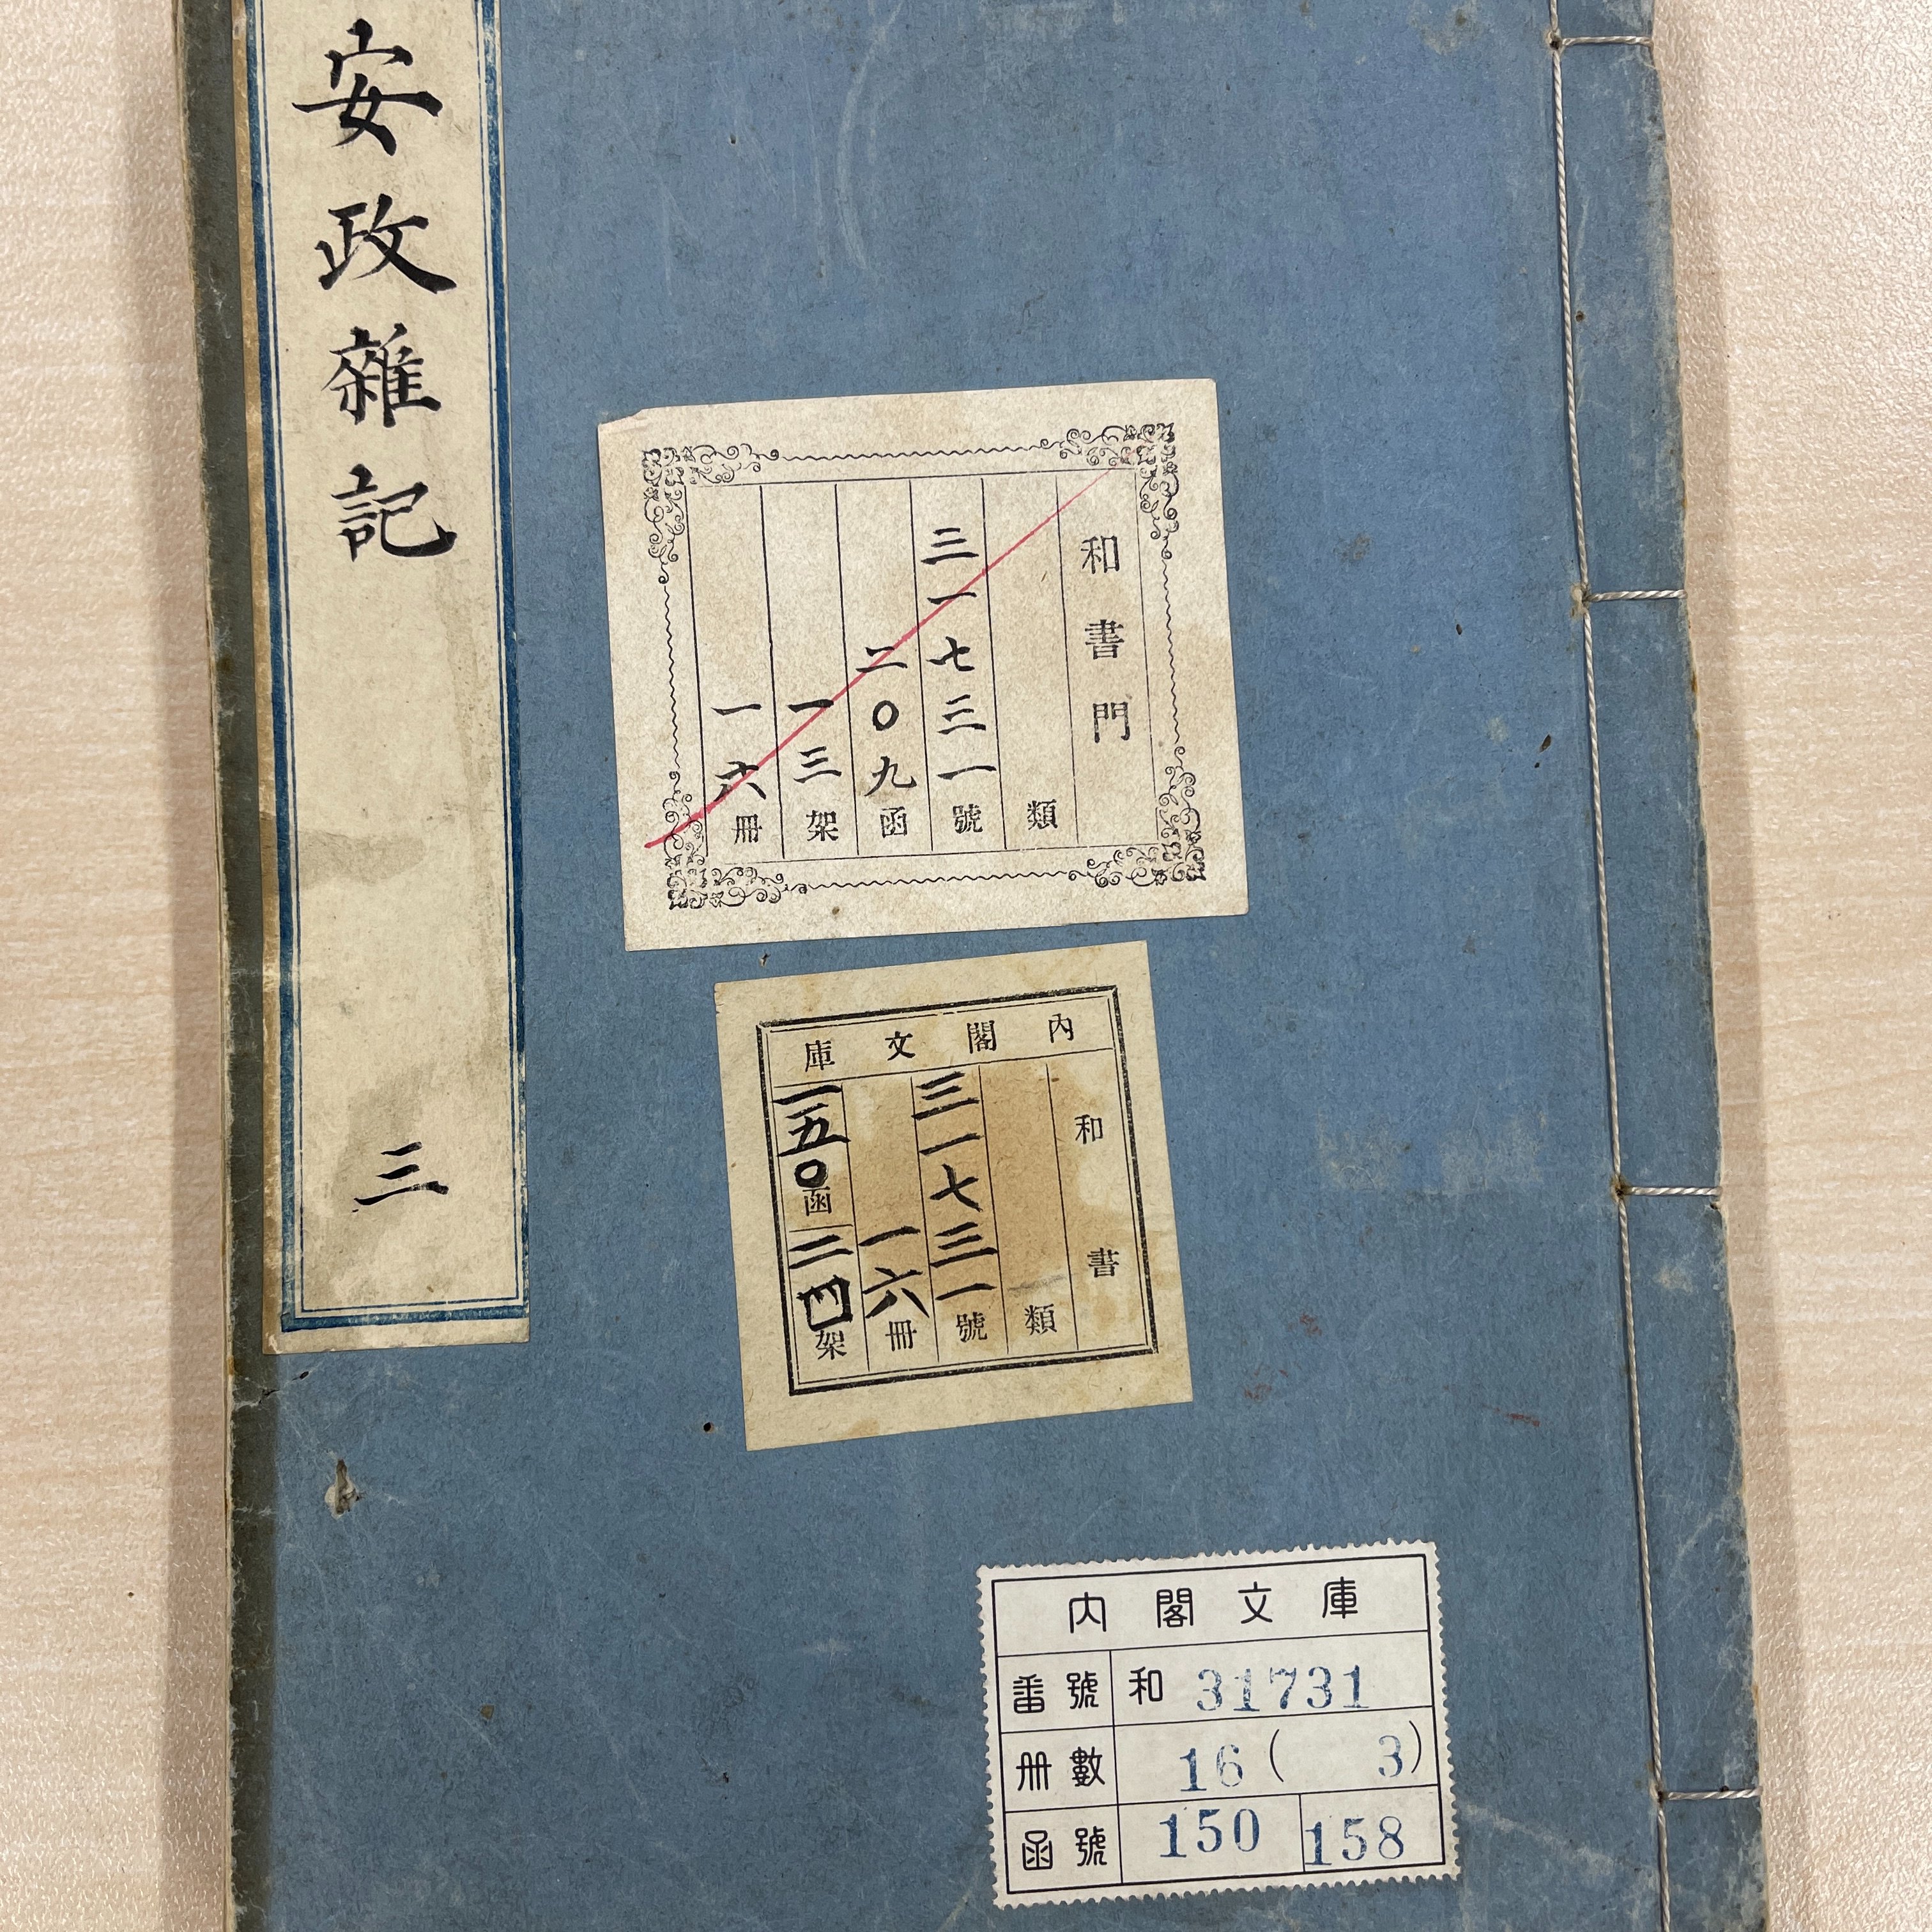 安政雜記
三
和書門
類
三一七三一號
二〇九函
一三架
一六冊
內閣文庫
和書
類
三一七三一號
一六冊
一五〇函
架
内閣文庫
番號 和 31731
冊數 16( 3)
函號 150 158